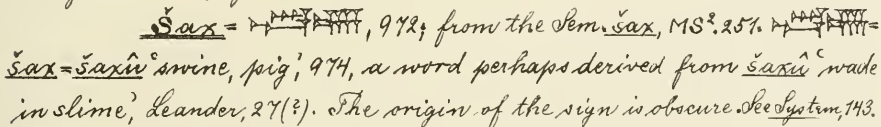 Šax = , 972; from the Sem. šax, MS². 251. =
šax = šaxû 'swine, pig', 974, a word perhaps derived from šaxû 'wade
in slime', Leander, 27(?). The origin of the sign is obscure. See System, 143.